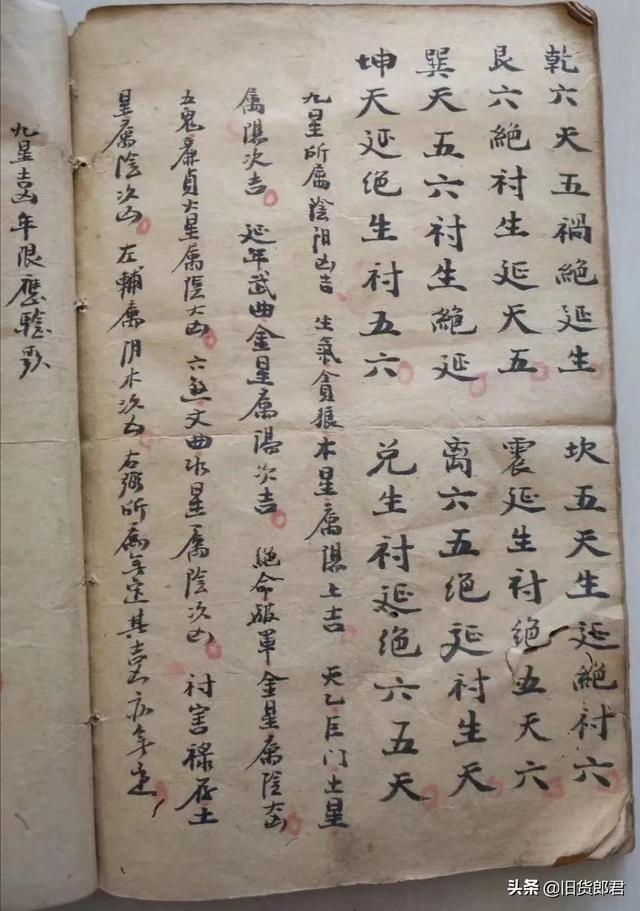 乾六天五禍絶延生
坎五天生延絶衬六
艮六絶衬生延天五
震延生衬绝五天六
巽天五六衬生絕延
离六五绝延衬生天
坤天延绝生衬五六
兑生衬延绝六五天
九星所属陰阳凶吉 生氣貪狼木星属陽上吉 天乙巨门土星
属陽次吉 延年武曲金星属陽次吉 绝命破軍金星属陰大凶
五鬼廉貞火星属陰大凶 六煞文曲水星属陰次凶 衬害禄存土
星属陰次凶 左輔属阴木次凶 右弼所属無定其吉凶亦無定
九星吉凶年限應驗歌
头条 @旧货郎君